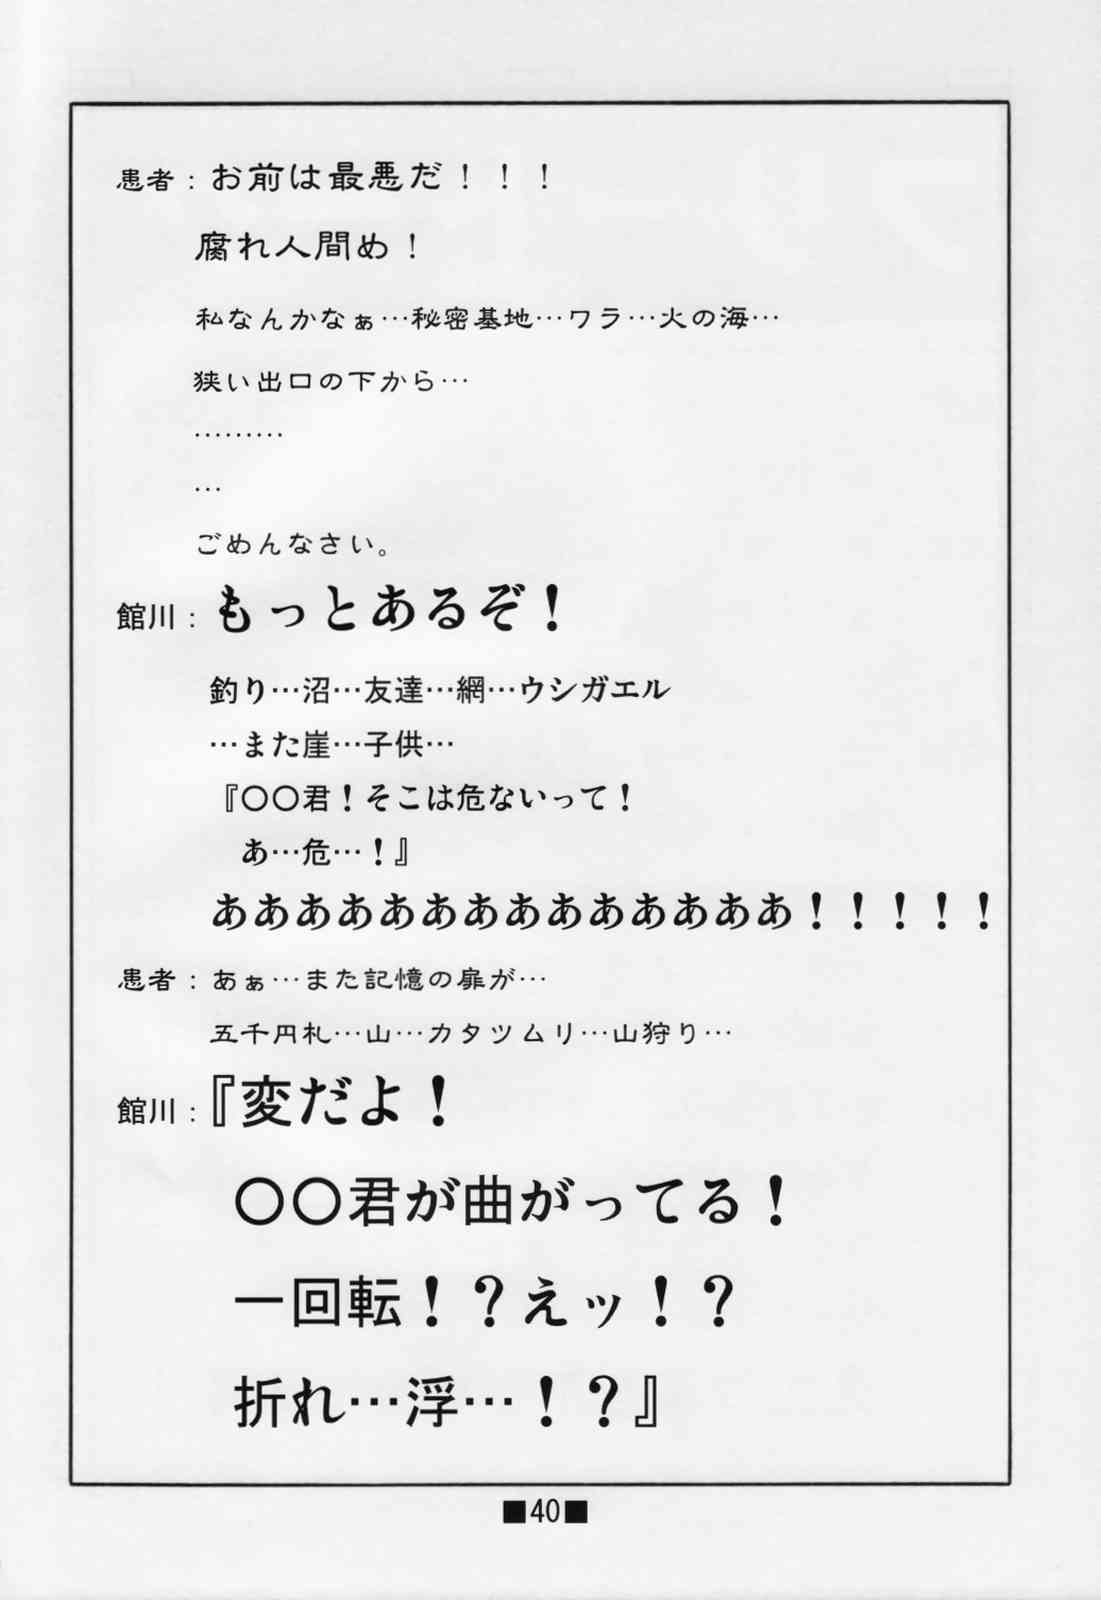 患者：お前は最悪だ！！！
腐れ人間め！
私なんかなぁ…秘密基地…ワラ…火の海…
狭い出口の下から…
………
…
ごめんなさい。
館川：もっとあるぞ！
釣り…沼…友達…網…ウシガエル
…また崖…子供…
『〇〇君！そこは危ないって！
あ…危…！』
ああああああああああああああ！！！！！
患者：あぁ…また記憶の扉が…
五千円札…山…カタツムリ…山狩り…
館川：『変だよ！
〇〇君が曲がってる！
一回転！？えッ！？
折れ…浮…！？』
■40■